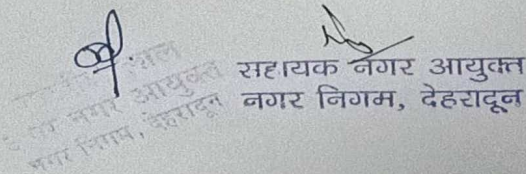 सहायक नगर आयुक्त
नगर निगम, देहरादून
नगर आयुक्त
नगर निगम, देहरादून